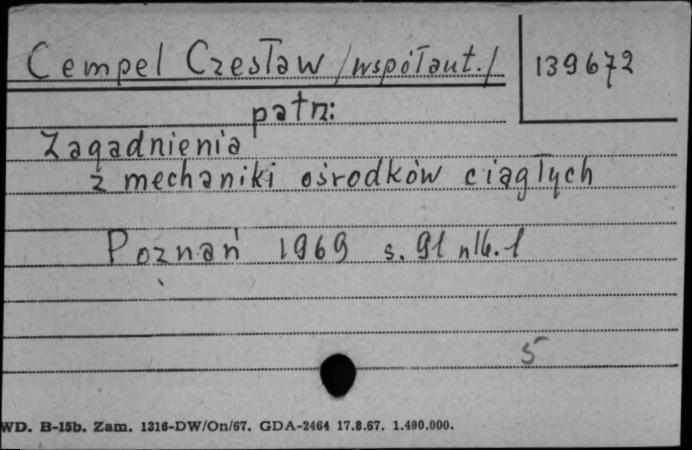 Cempel Czesław /współaut./ 139672
patrz:
Zagadnienia
z mechaniki ośrodków ciągłych
Poznań 1969 s. 91 nlb. 1
5
WD. B-15b. Zam. 1316-DW/On/67. GDA-2464 17.8.67. 1.400.000.